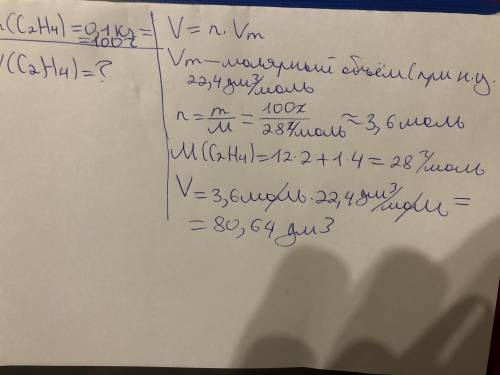 (C₂H₄)=0,1кг=
=100г
V(C₂H₄)=?
V=n·Vm
Vm-молярный объём (при н.у.
22,4 дм³/моль
n=m/M=100г/28г/моль≈3,6моль
M(C₂H₄)=12·2+1·4=28г/моль
V=3,6моль·22,4дм³/моль=
=80,64 дм3